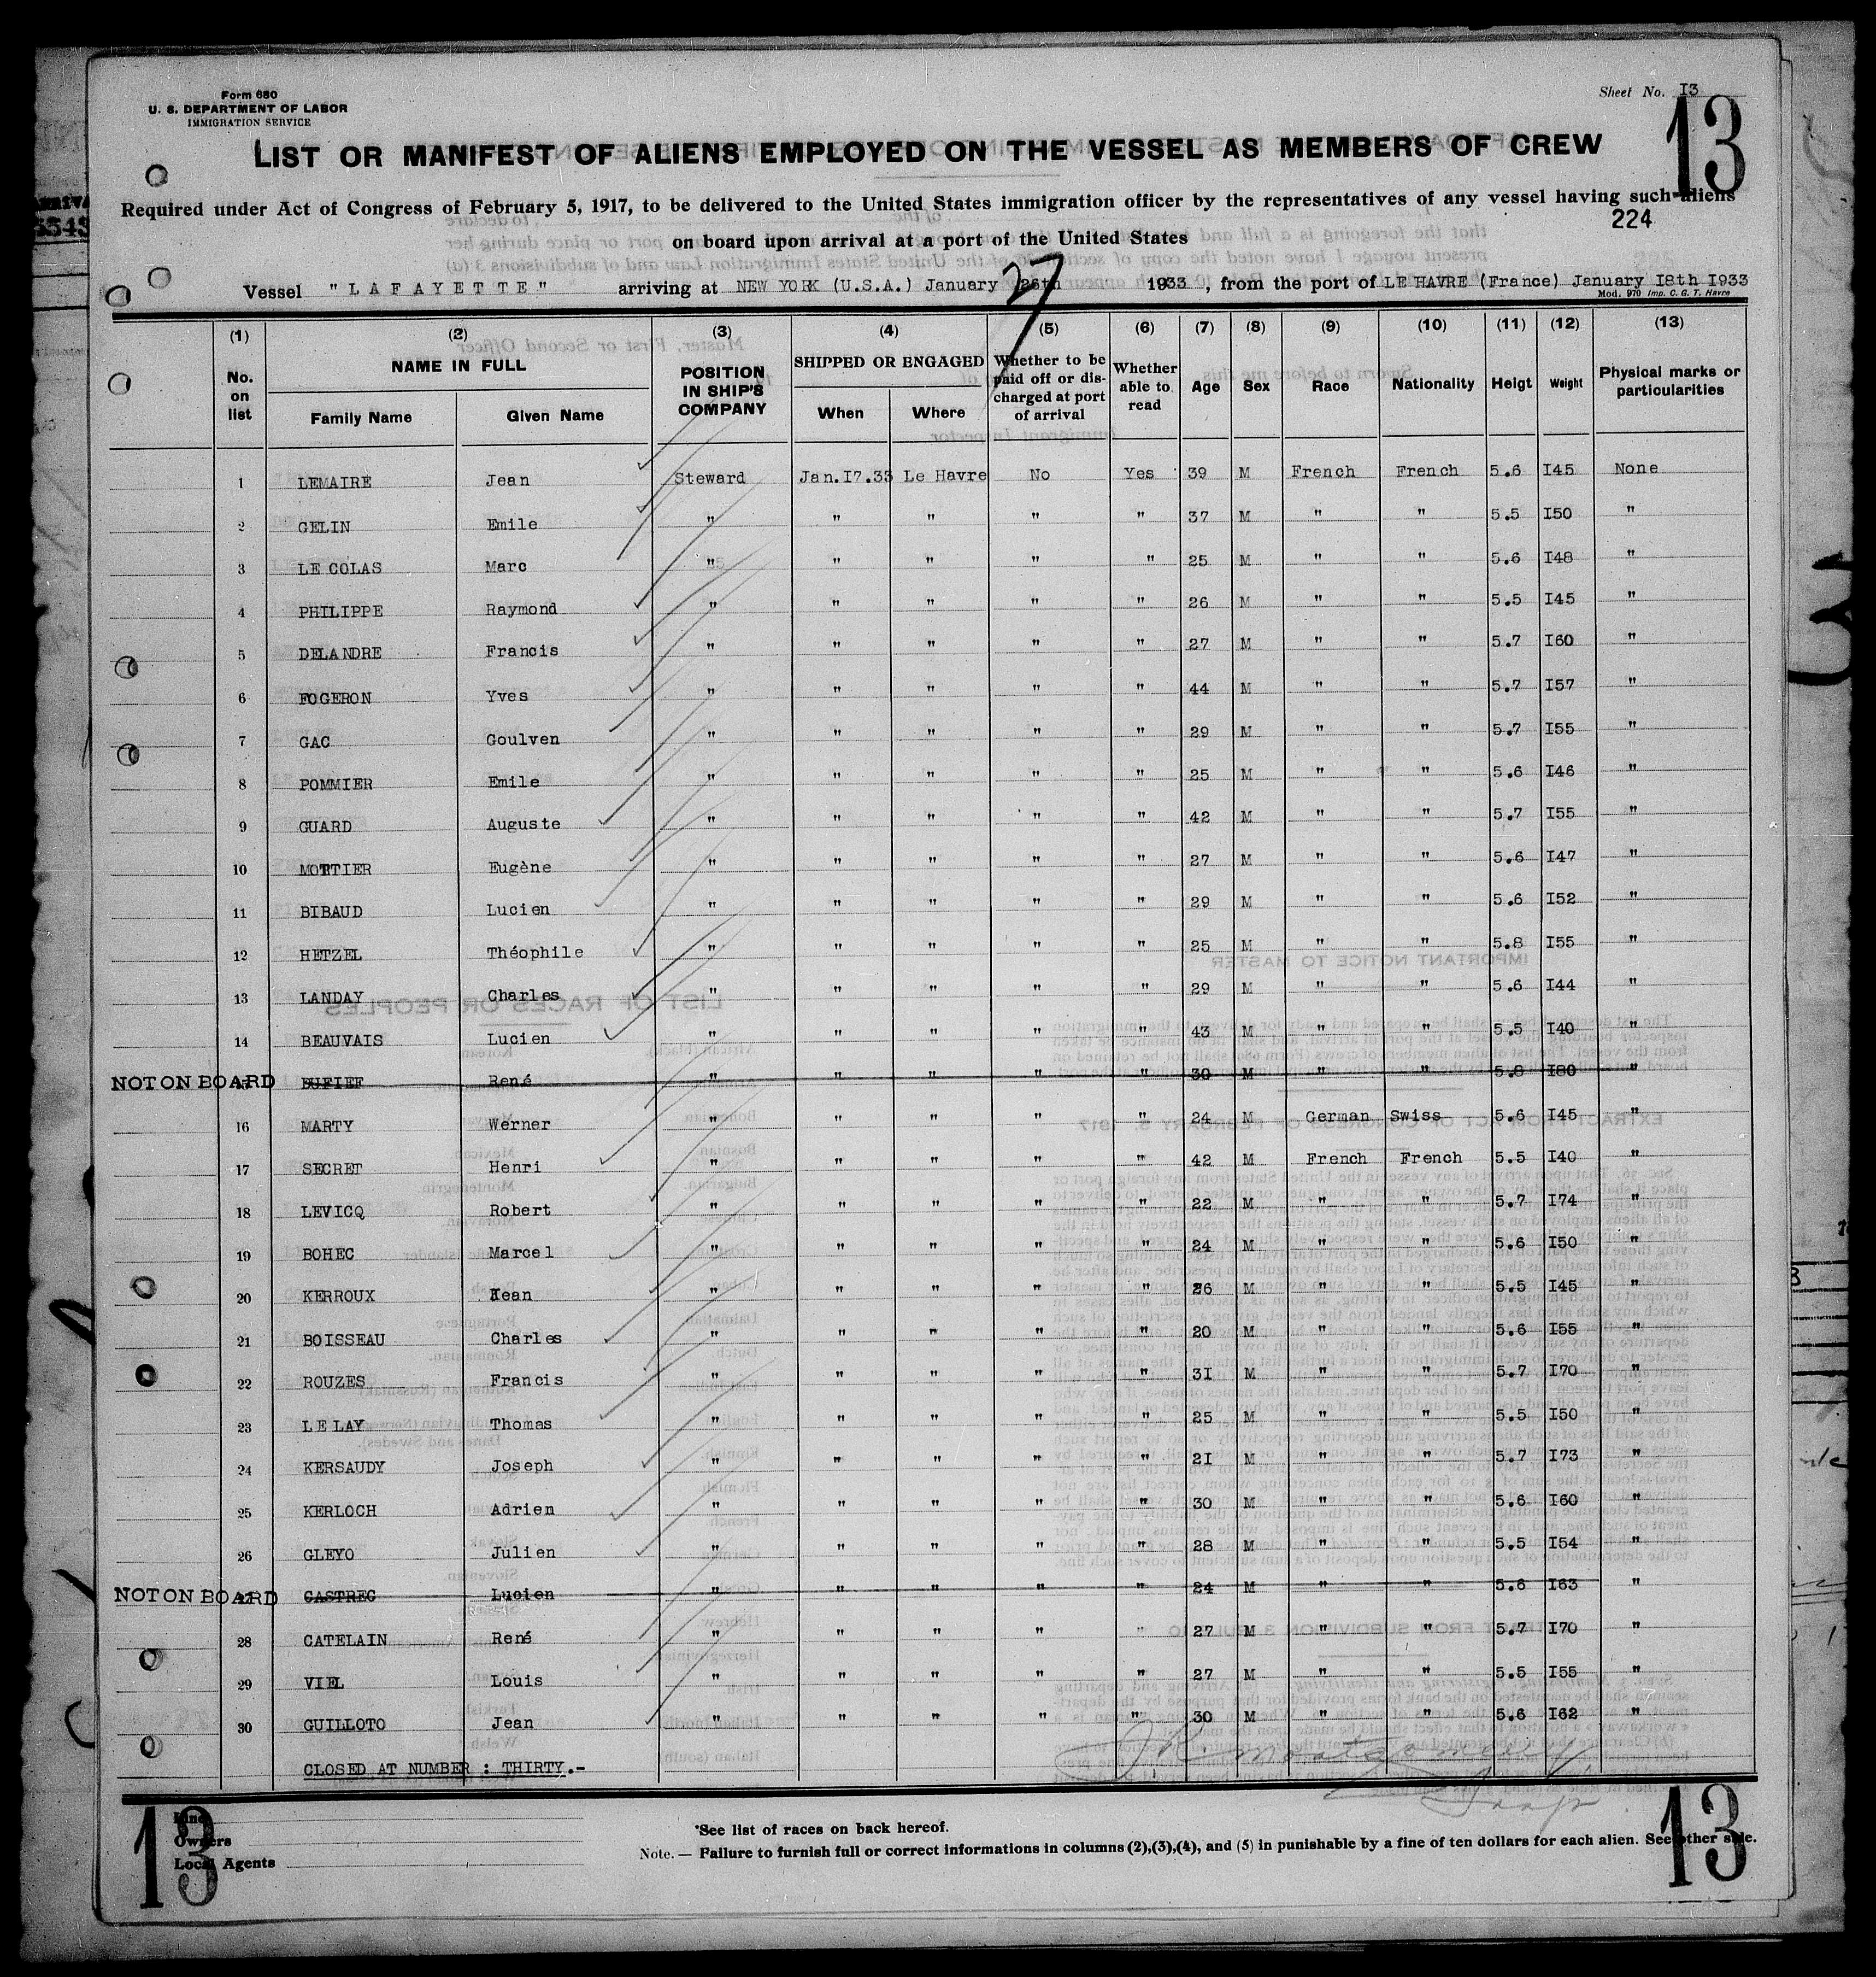 Form 680
U. S. DEPARTMENT OF LABOR
IMMIGRATION SERVICE
Sheet No. I3
13
LIST OR MANIFEST OF ALIENS EMPLOYED ON THE VESSEL AS MEMBERS OF CREW
Required under Act of Congress of February 5, 1917, to be delivered to the United States immigration officer by the representatives of any vessel having such aliens
224
on board upon arrival at a port of the United States
27
Vessel "LAFAYETTE" arriving at NEW YORK (U.S.A.) January 26th 1933, from the port of LE HAVRE (France) January I8th I933
Mod. 970 Imp. C. G. T. Havre
(1) (2) (3) (4) (5) (6) (7) (8) (9) (10) (11) (12) (13)
No. on list NAME IN FULL Family Name Given Name POSITION IN SHIP'S COMPANY SHIPPED OR ENGAGED When Where Whether to be paid off or discharged at port of arrival Whether able to read Age Sex Race Nationality Heigt Weight Physical marks or particularities
1 LEMAIRE Jean Steward Jan.I7.33 Le Havre No Yes 39 M French French 5.6 I45 None
2 GELIN Emile " " " " " 37 M " " 5.5 I50 "
3 LE COLAS Marc " " " " " 25 M " " 5.6 I48 "
4 PHILIPPE Raymond " " " " " 26 M " " 5.5 I45 "
5 DELANDRE Francis " " " " " 27 M " " 5.7 I60 "
6 FOGERON Yves " " " " " 44 M " " 5.7 I57 "
7 GAC Goulven " " " " " 29 M " " 5.7 I55 "
8 POMMIER Emile " " " " " 25 M " " 5.6 I46 "
9 GUARD Auguste " " " " " 42 M " " 5.7 I55 "
10 MOTTIER Eugène " " " " " 27 M " " 5.6 I47 "
11 BIBAUD Lucien " " " " " 29 M " " 5.6 I52 "
12 HETZEL Théophile " " " " " 25 M " " 5.8 I55 "
13 LANDAY Charles " " " " " 29 M " " 5.6 I44 "
14 BEAUVAIS Lucien " " " " " 43 M " " 5.5 I40 "
NOT ON BOARD 15 DUFIEF René " " " " " 30 M " " 5.8 I80 "
16 MARTY Werner " " " " " 24 M German Swiss 5.6 I45 "
17 SECRET Henri " " " " " 42 M French French 5.5 I40 "
18 LEVICQ Robert " " " " " 22 M " " 5.7 I74 "
19 BOHEC Marcel " " " " " 24 M " " 5.6 I50 "
20 KERROUX Jean " " " " " 26 M " " 5.5 I45 "
21 BOISSEAU Charles " " " " " 20 M " " 5.6 I55 "
22 ROUZES Francis " " " " " 3I M " " 5.7 I70 "
23 LE LAY Thomas " " " " " 25 M " " 5.5 I50 "
24 KERSAUDY Joseph " " " " " 2I M " " 5.7 I73 "
25 KERLOCH Adrien " " " " " 30 M " " 5.6 I60 "
26 GLEYO Julien " " " " " 28 M " " 5.5 I54 "
NOT ON BOARD 27 CASTREC Lucien " " " " " 24 M " " 5.6 I63 "
28 CATELAIN René " " " " " 27 M " " 5.7 I70 "
29 VIEL Louis " " " " " 27 M " " 5.5 I55 "
30 GUILLOTO Jean " " " " " 30 M " " 5.6 I62 "
CLOSED AT NUMBER : THIRTY.-
13
Owners
Local Agents
*See list of races on back hereof.
Note. — Failure to furnish full or correct informations in columns (2),(3),(4), and (5) in punishable by a fine of ten dollars for each alien. See other side.
13